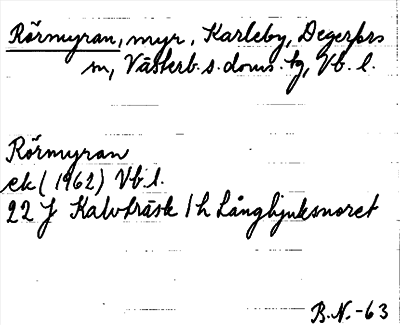 Rörmyran, myr, Karleby, Degerfors
m, Västerb. s. doms. tg, Vb. l.
Rörmyran
ek (1962) Vb l.
22 J Kalvträsk 1 h Långbjuksnoret
B.N.-63